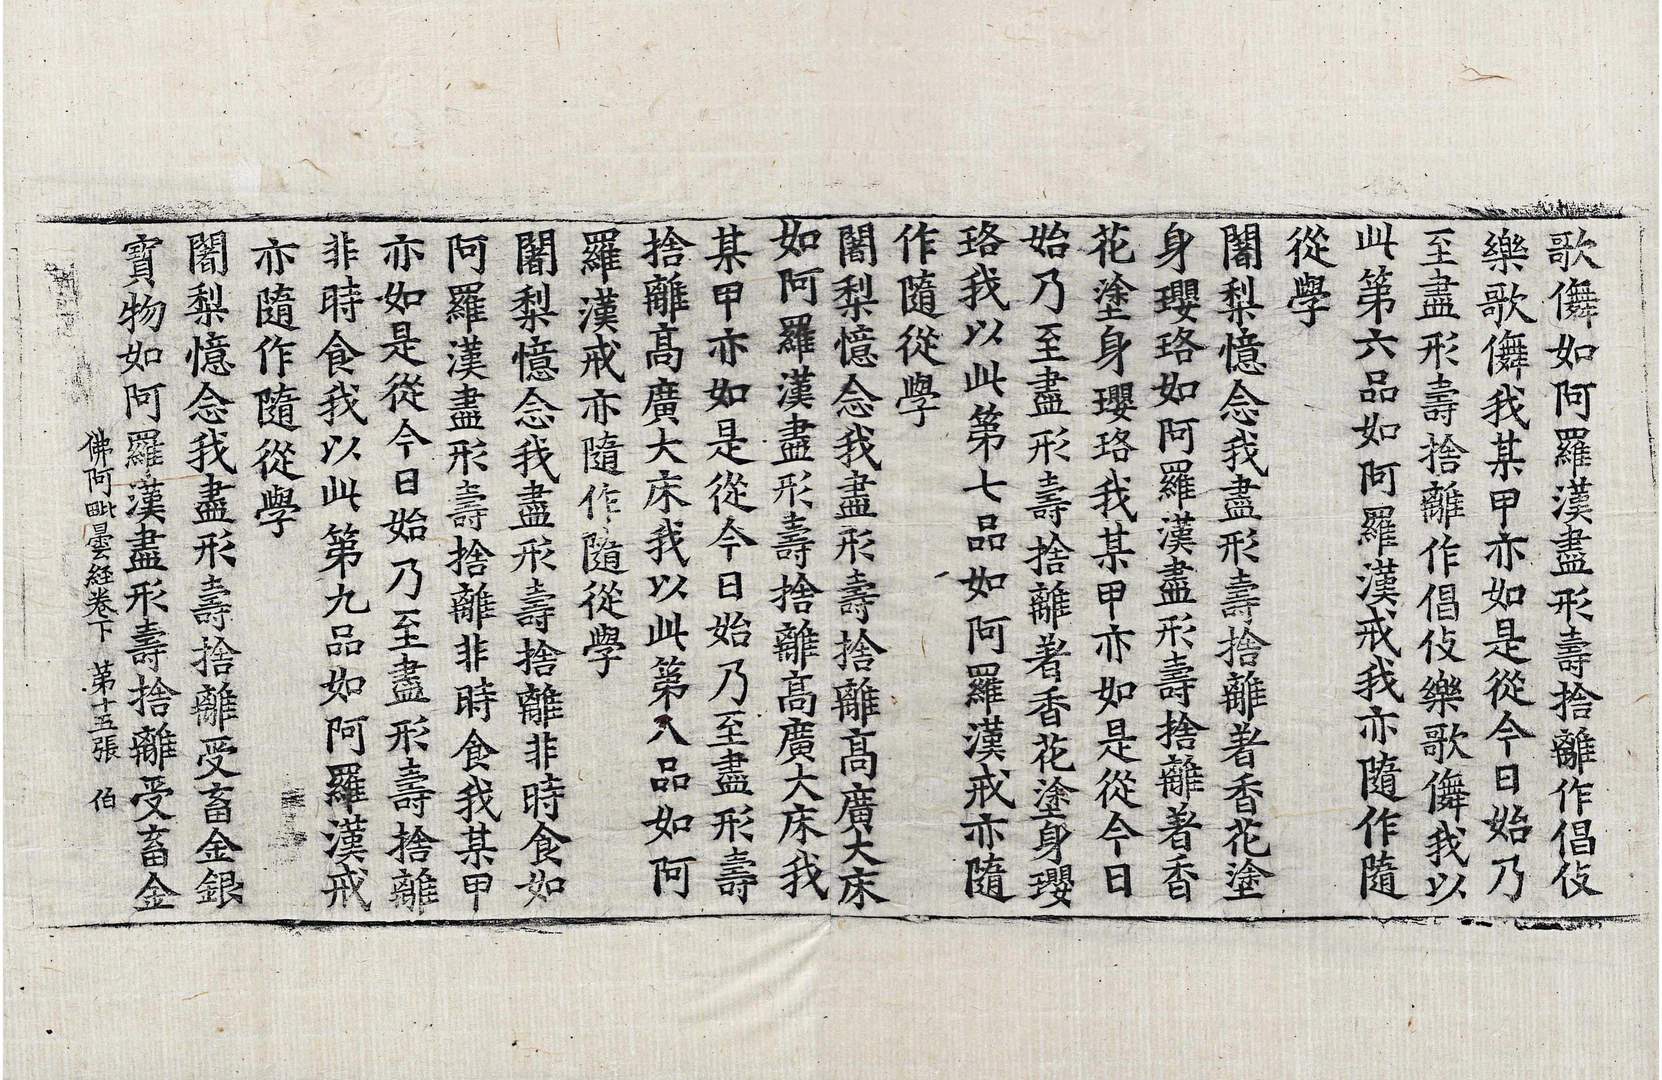 歌儛如阿羅漢盡形壽捨離作倡伎
樂歌儛我某甲亦如是從今日始乃
至盡形壽捨離作倡伎樂歌儛我以
此第六品如阿羅漢戒我亦隨作隨
從學
闍梨憶念我盡形壽捨離著香花塗
身瓔珞如阿羅漢盡形壽捨離著香
花塗身瓔珞我某甲亦如是從今日
始乃至盡形壽捨離著香花塗身瓔
珞我以此第七品如阿羅漢戒亦隨
作隨從學
闍梨憶念我盡形壽捨離高廣大床
如阿羅漢盡形壽捨離高廣大床我
某甲亦如是從今日始乃至盡形壽
捨離高廣大床我以此第八品如阿
羅漢戒亦隨作隨從學
闍梨憶念我盡形壽捨離非時食如
阿羅漢盡形壽捨離非時食我某甲
亦如是從今日始乃至盡形壽捨離
非時食我以此第九品如阿羅漢戒
亦隨作隨從學
闍梨憶念我盡形壽捨離受畜金銀
寶物如阿羅漢盡形壽捨離受畜金
佛阿毗曇経卷下 第十五張 伯